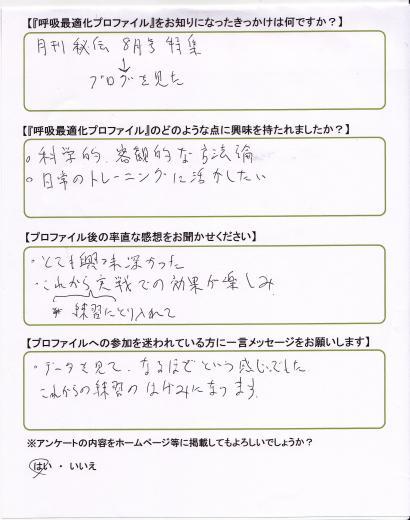 【『呼吸最適化プロファイル』をお知りになったきっかけは何ですか？】
月刊 秘伝 8月号 特集
↓
ブログを見た
【『呼吸最適化プロファイル』のどのような点に興味を持たれましたか？】
○ 科学的、客観的な方法論
○ 日常のトレーニングに活かしたい
【プロファイル後の率直な感想をお聞かせください】
・とても興味深かった
・これから実戦での効果が楽しみ
* 練習にとり入れて
【プロファイルへの参加を迷われている方に一言メッセージをお願いします】
・データを見て、なるほどという感じでした
これからの練習のはげみになります
※アンケートの内容をホームページ等に掲載してもよろしいでしょうか？
はい ・ いいえ